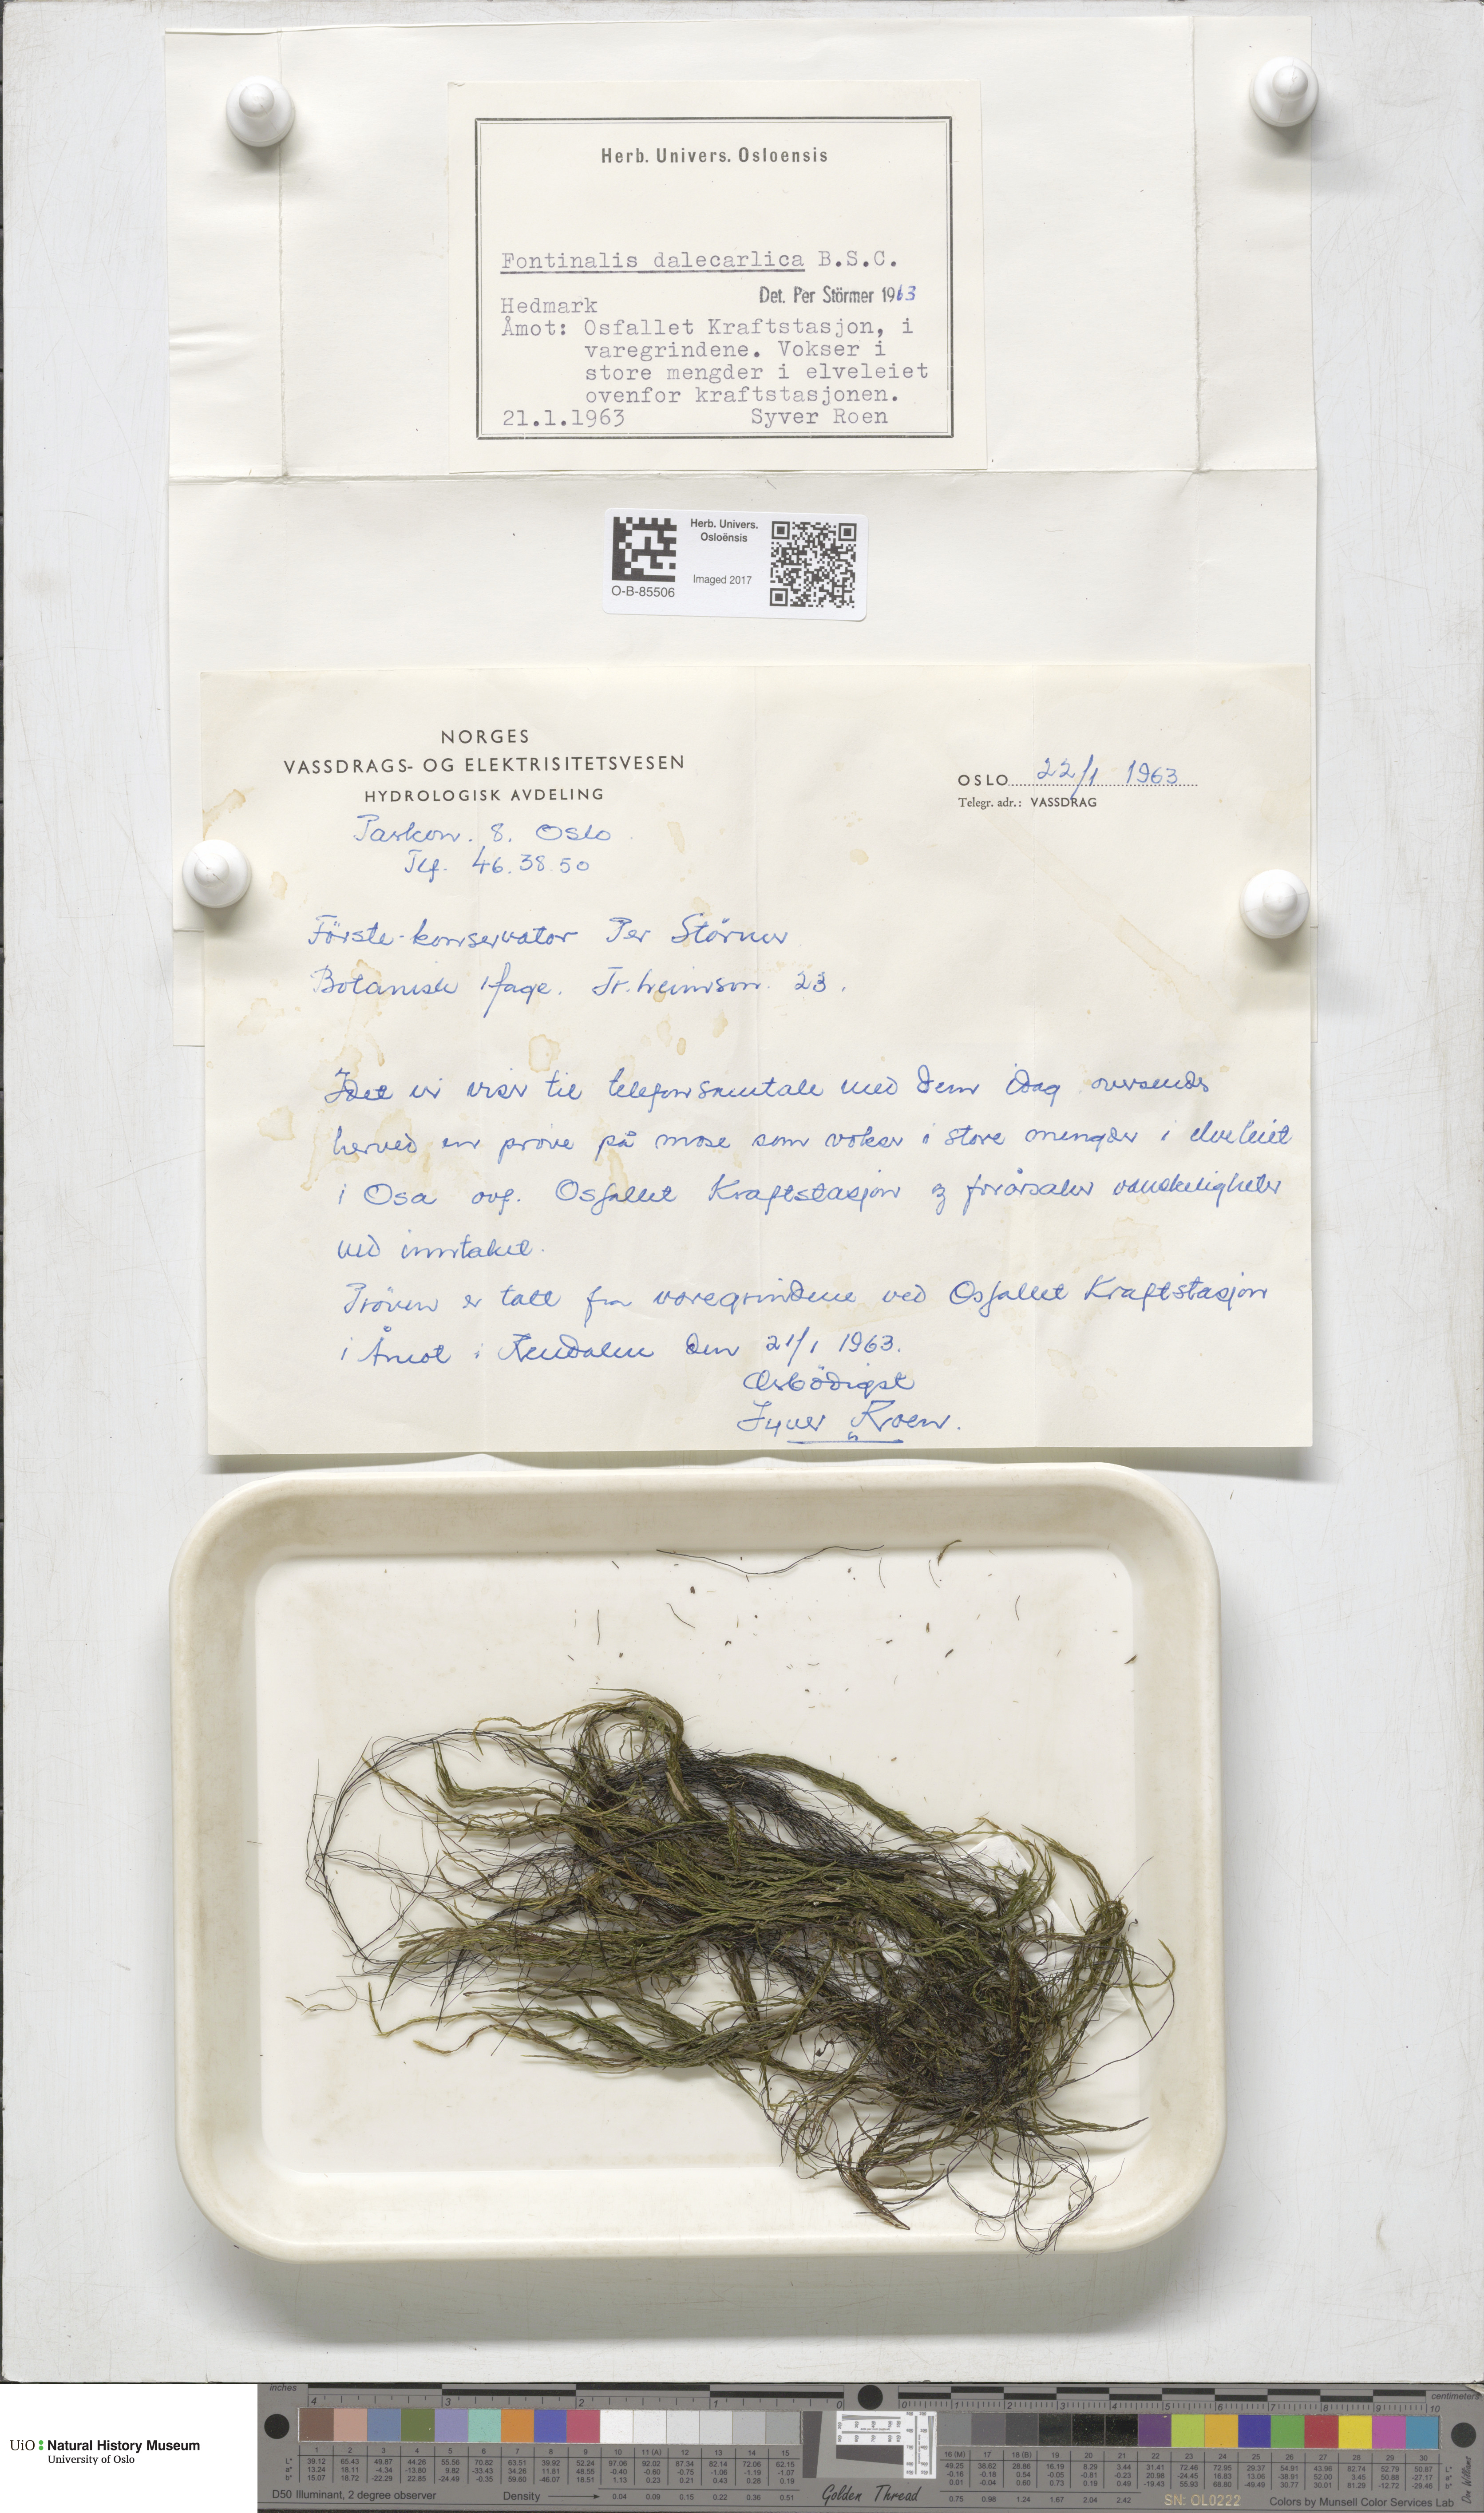 Herb. Univers. Osloensis
Fontinalis dalecarlica B.S.C.
Det. Per Störmer 1963
Hedmark
Åmot: Osfallet Kraftstasjon, i
varegrindene. Vokser i
store mengder i elveleiet
ovenfor kraftstasjonen.
21.1.1963 Syver Roen
Herb. Univers.
Osloënsis
Imaged 2017
O-B-85506
NORGES
VASSDRAGS- OG ELEKTRISITETSVESEN
HYDROLOGISK AVDELING
OSLO 22/1 1963
Telegr. adr.: VASSDRAG
Parkv. 8. Oslo
Tlf. 46.38.50
Förste-konservator Per Störmer
Botanisk Hage. Tr.heimsvn. 23.
Idet vi viser til telefonsamtale med Dem idag oversendes
herved en prøve på mose som vokser i store mengder i elveleiet
i Osa ovf. Osfallet Kraftstasjon og forårsaker vanskeligheter
ved inntaket.
Pröven er tatt fra varegrindene ved Osfallet Kraftstasjon
i Åmot i Rendalen den 21/1 1963.
Ærbödigst
Syver Roen.
UiO Natural History Museum
University of Oslo
inches
centimeters
D50 Illuminant, 2 degree observer
Density
Golden Thread
SN: OL0222
Colors by Munsell Color Services Lab